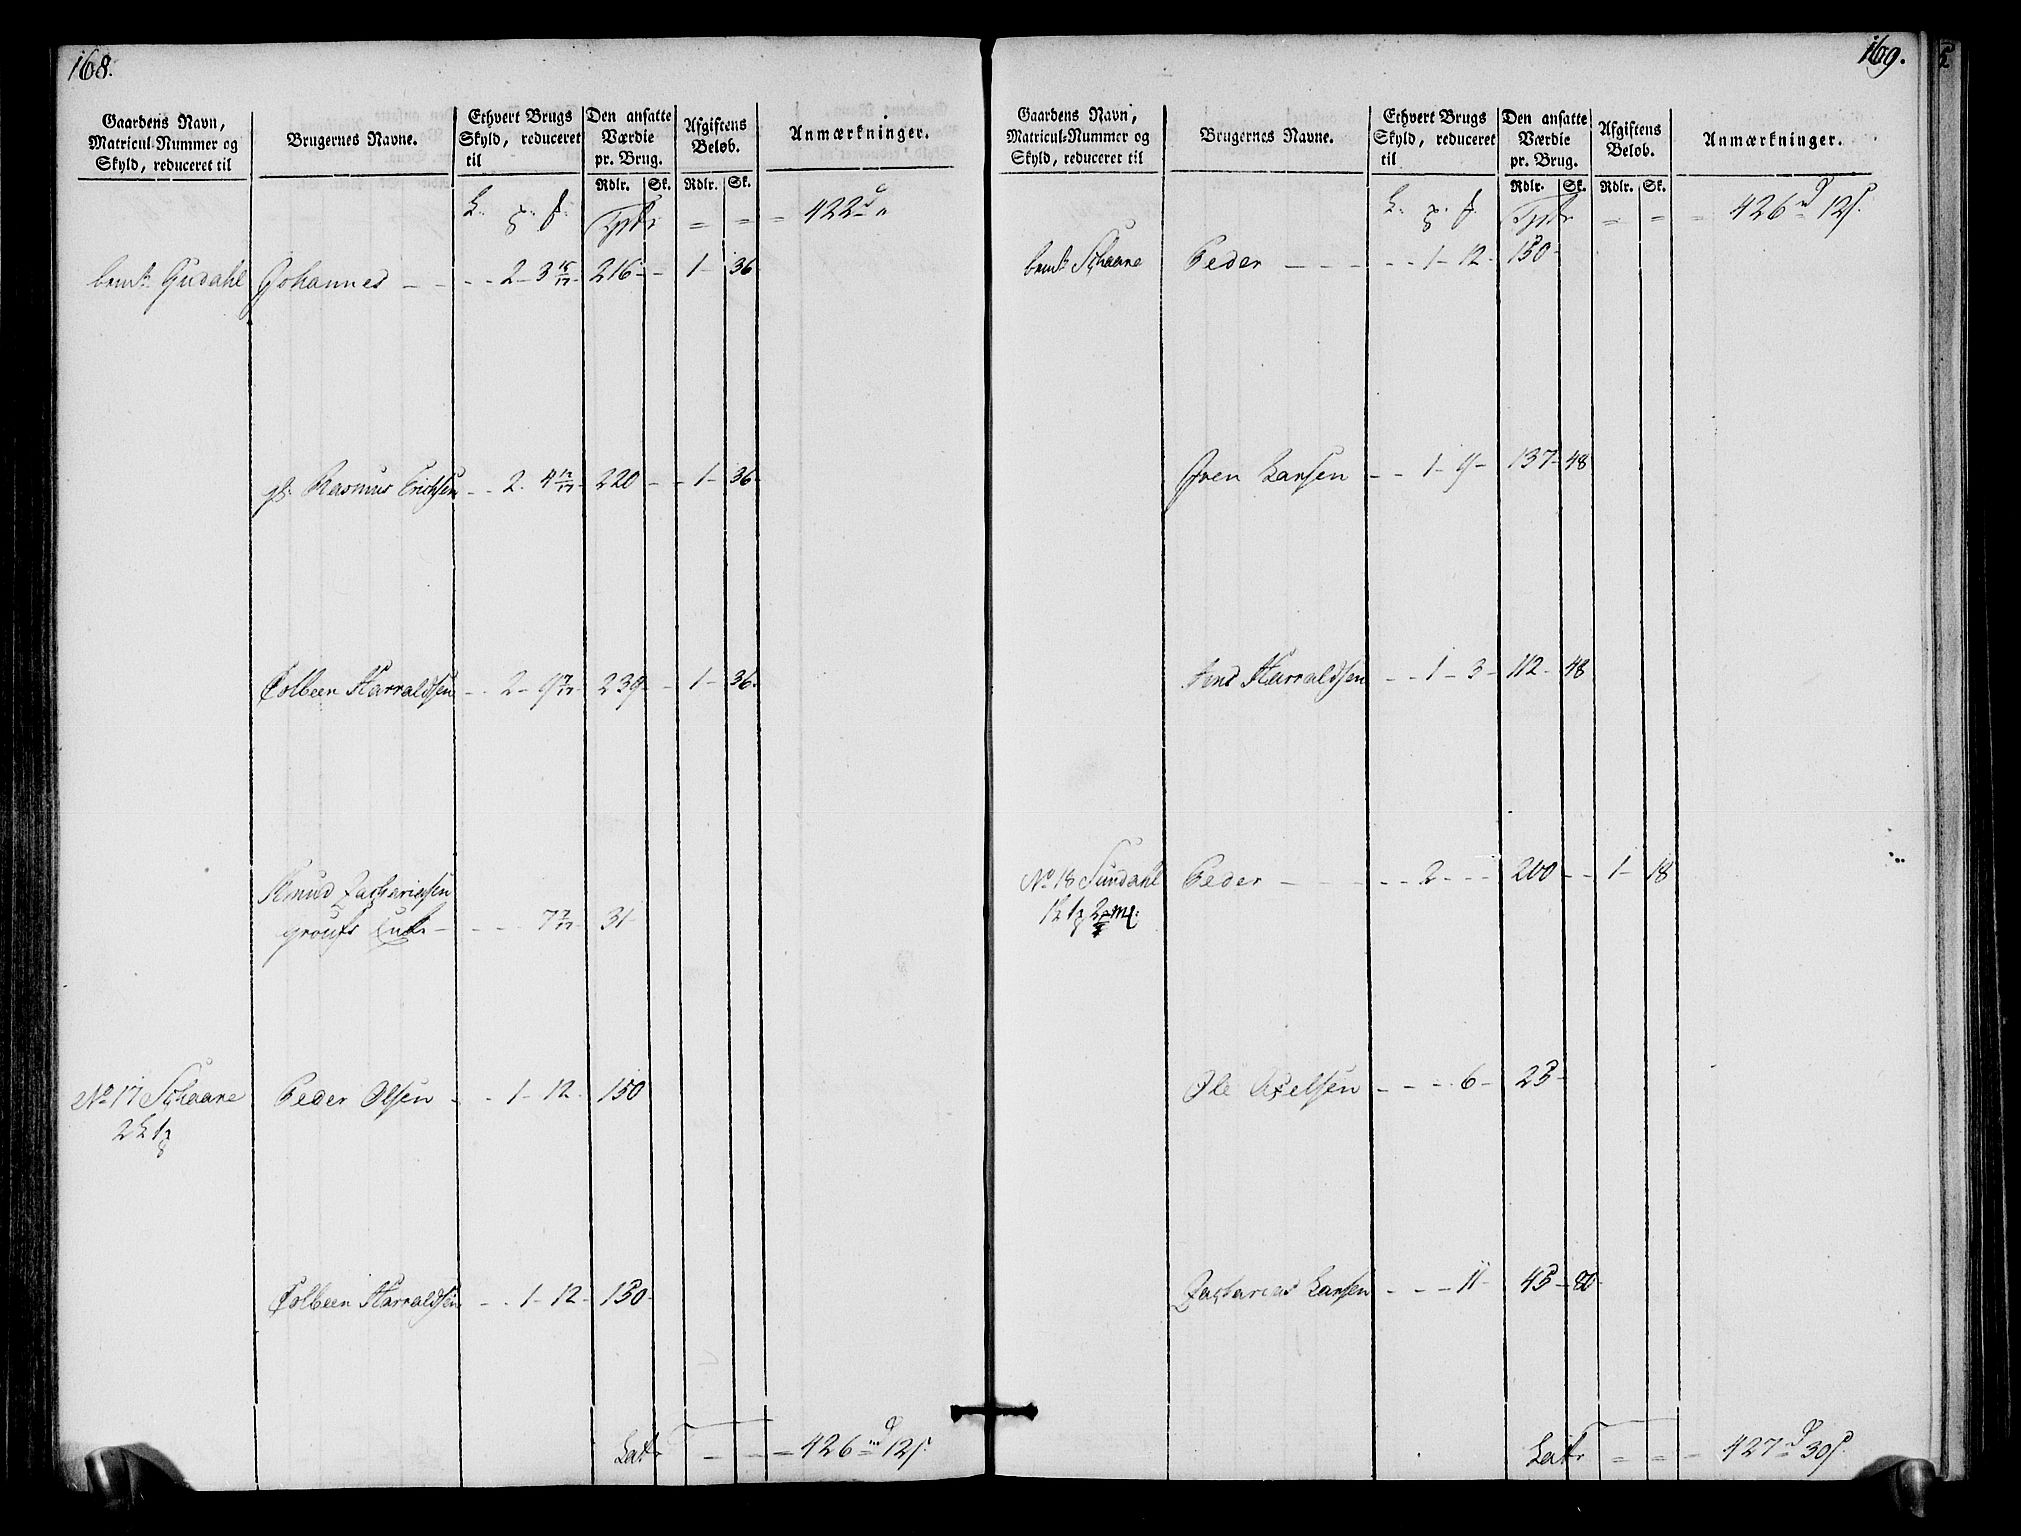 168.
Gaardens Navn, Matricul-Nummer og Skyld, reduceret til | Brugernes Navne. | Ethvert Brugs Skyld, reduceret til | Den ansatte Værdie pr. Brug. Rdlr. Sk. | Afgiftens Beløb. Rdlr. Sk. | Anmærkninger.
= = = 422
Gudahl Johannes - - - - 2 - 3 15/17 - 216 - - 1 - 36
Rasmus Erichsen - - 2 - 4 12/17 - 220 - - 1 - 36
Tolbeen Harraldsen - - 2 - 9 7/17 - 239 - - 1 - 36.
Knud Zachariasen
- - - - 7 7/17 - 31
No 17 Schaare Peder Olsen - - 1 - 12 - 150
Tolbeen Harraldsen - - 1 - 12 - 150 -
Latr - - - 426 12
169.
Gaardens Navn, Matricul-Nummer og Skyld, reduceret til | Brugernes Navne. | Ethvert Brugs Skyld, reduceret til | Den ansatte Værdie pr. Brug. Rdlr. Sk. | Afgiftens Beløb. Rdlr. Sk. | Anmærkninger.
= = = 426 12
Schaare Peder - - - - - 1 - 12 - 150 -
Iven Larsen - - 1 - 9 - 137 - 48
Harraldsen - - 1 - 3 - 112 - 48
No 18 Sundahl Peder - - - - - 2 - - - 200 - - 1 - 18
Ole Axelsen - - - 6 - 25 -
Zacharias Larsen - - - 11 - 45 - 80
Latr = = = 427 30